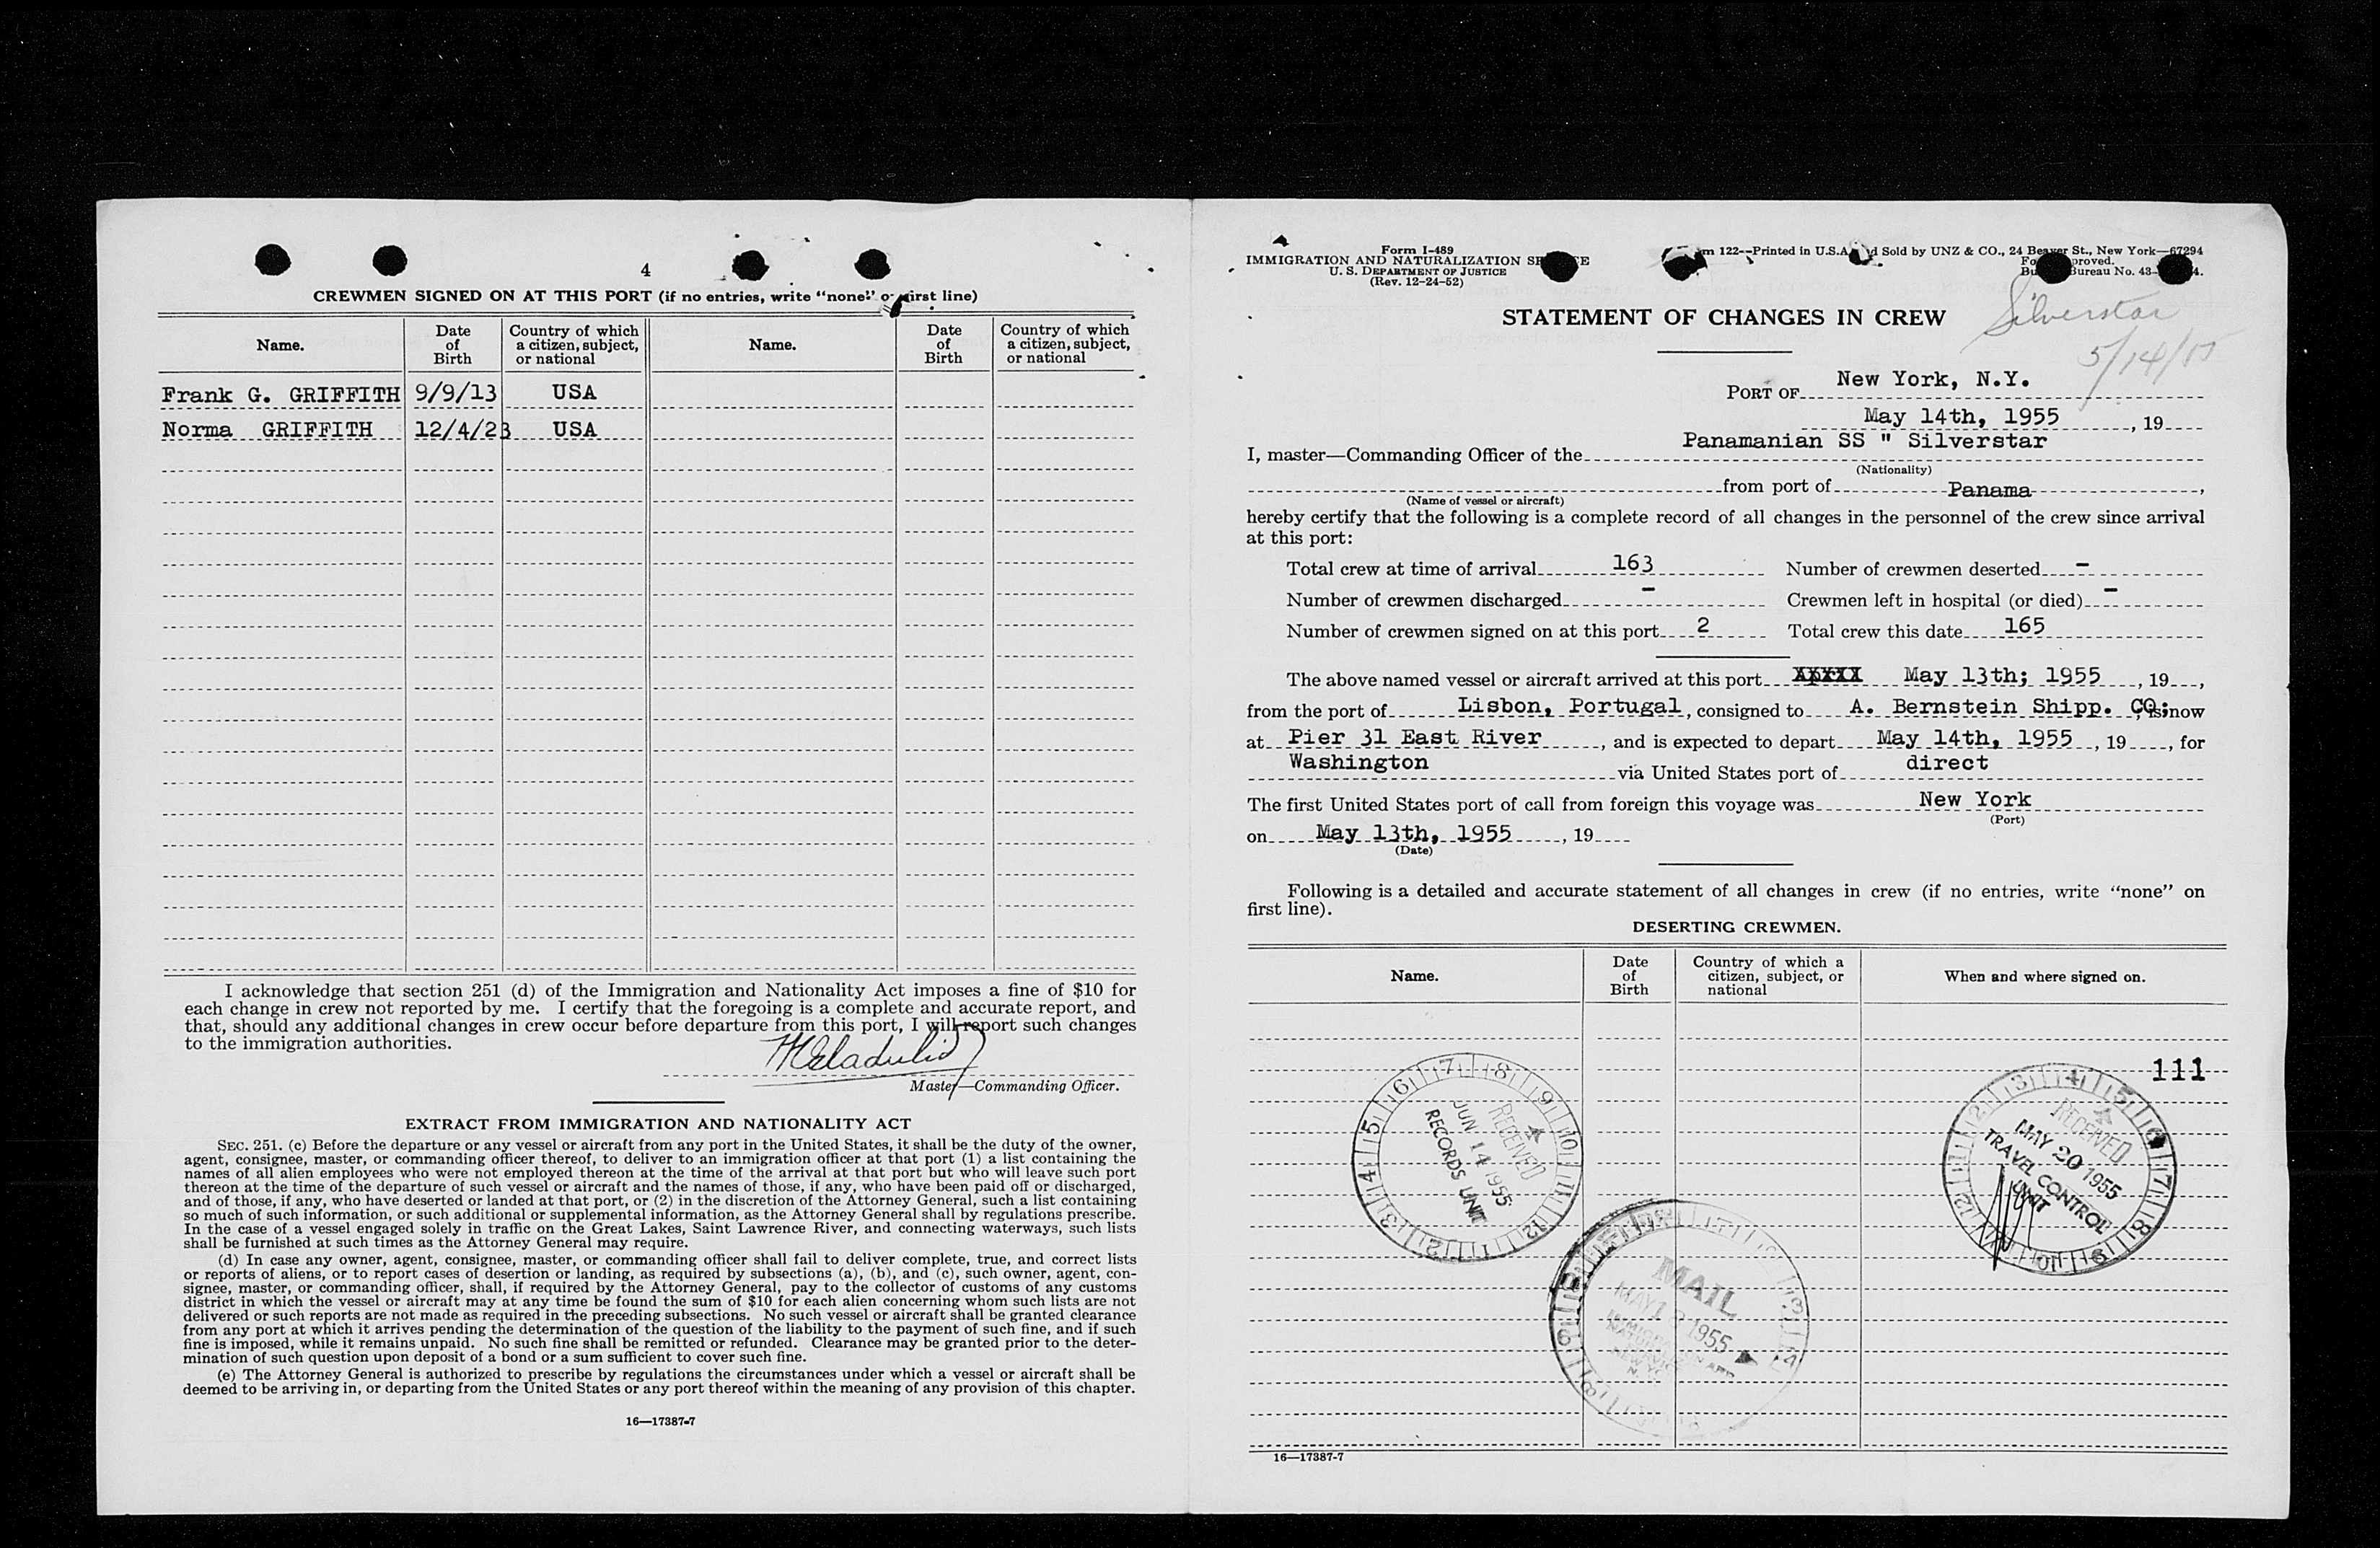 4
CREWMEN SIGNED ON AT THIS PORT (if no entries, write "none" on first line)
Name. Date of Birth Country of which a citizen, subject, or national Name. Date of Birth Country of which a citizen, subject, or national
Frank G. GRIFFITH 9/9/13 USA
Norma GRIFFITH 12/4/23 USA
I acknowledge that section 251 (d) of the Immigration and Nationality Act imposes a fine of $10 for
each change in crew not reported by me. I certify that the foregoing is a complete and accurate report, and
that, should any additional changes in crew occur before departure from this port, I will report such changes
to the immigration authorities.
Master—Commanding Officer.
EXTRACT FROM IMMIGRATION AND NATIONALITY ACT
SEC. 251. (c) Before the departure or any vessel or aircraft from any port in the United States, it shall be the duty of the owner,
agent, consignee, master, or commanding officer thereof, to deliver to an immigration officer at that port (1) a list containing the
names of all alien employees who were not employed thereon at the time of the arrival at that port but who will leave such port
thereon at the time of the departure of such vessel or aircraft and the names of those, if any, who have been paid off or discharged,
and of those, if any, who have deserted or landed at that port, or (2) in the discretion of the Attorney General, such a list containing
so much of such information, or such additional or supplemental information, as the Attorney General shall by regulations prescribe.
In the case of a vessel engaged solely in traffic on the Great Lakes, Saint Lawrence River, and connecting waterways, such lists
shall be furnished at such times as the Attorney General may require.
(d) In case any owner, agent, consignee, master, or commanding officer shall fail to deliver complete, true, and correct lists
or reports of aliens, or to report cases of desertion or landing, as required by subsections (a), (b), and (c), such owner, agent, con-
signee, master, or commanding officer, shall, if required by the Attorney General, pay to the collector of customs of any customs
district in which the vessel or aircraft may at any time be found the sum of $10 for each alien concerning whom such lists are not
delivered or such reports are not made as required in the preceding subsections. No such vessel or aircraft shall be granted clearance
from any port at which it arrives pending the determination of the question of the liability to the payment of such fine, and if such
fine is imposed, while it remains unpaid. No such fine shall be remitted or refunded. Clearance may be granted prior to the deter-
mination of such question upon deposit of a bond or a sum sufficient to cover such fine.
(e) The Attorney General is authorized to prescribe by regulations the circumstances under which a vessel or aircraft shall be
deemed to be arriving in, or departing from the United States or any port thereof within the meaning of any provision of this chapter.
16—17387-7
Form I-489
IMMIGRATION AND NATURALIZATION SERVICE
U. S. DEPARTMENT OF JUSTICE
(Rev. 12-24-52)
122--Printed in U.S.A. Sold by UNZ & CO., 24 Beaver St., New York—67294
Bureau No. 43-
Silverstar
5/14/55
STATEMENT OF CHANGES IN CREW
PORT OF New York, N.Y.
May 14th, 1955, 19
I, master—Commanding Officer of the Panamanian SS " Silverstar
(Nationality)
from port of Panama,
(Name of vessel or aircraft)
hereby certify that the following is a complete record of all changes in the personnel of the crew since arrival
at this port:
Total crew at time of arrival 163 Number of crewmen deserted -
Number of crewmen discharged - Crewmen left in hospital (or died) -
Number of crewmen signed on at this port 2 Total crew this date 165
The above named vessel or aircraft arrived at this port May 13th; 1955, 19,
from the port of Lisbon, Portugal, consigned to A. Bernstein Shipp. CO; is now
at Pier 31 East River, and is expected to depart May 14th, 1955, 19, for
Washington via United States port of direct
The first United States port of call from foreign this voyage was New York
(Port)
on May 13th, 1955, 19
(Date)
Following is a detailed and accurate statement of all changes in crew (if no entries, write "none" on
first line).
DESERTING CREWMEN.
Name. Date of Birth Country of which a citizen, subject, or national When and where signed on.
111
RECEIVED
JUN 14 1955
RECORDS UNIT
RECEIVED
MAY 20 1955
TRAVEL CONTROL
UNIT
MAIL
1955
16—17387-7